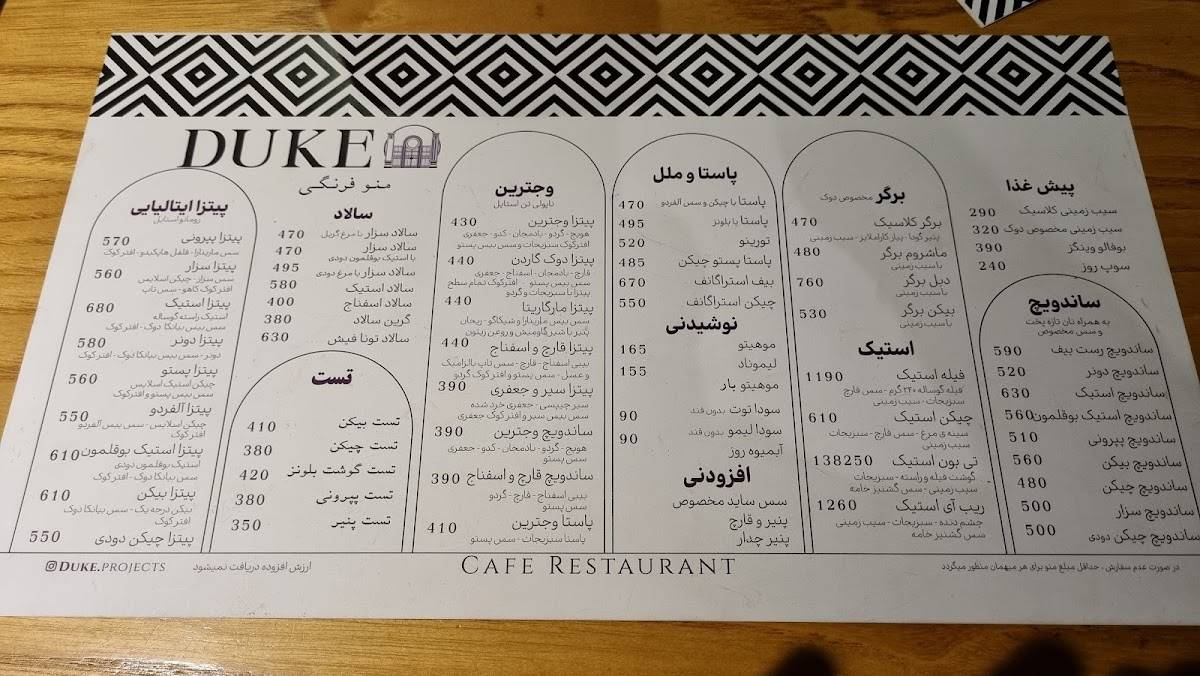 DUKE
منو فرنگی
پیش غذا
سیب زمینی کلاسیک 290
سیب زمینی مخصوص دوک 320
بوفالو وینگز 390
سوپ روز 240
ساندویچ
به همراه نان تازه پخت
و سس مخصوص
ساندویچ رست بیف 590
ساندویچ دونر 520
ساندویچ استیک 630
ساندویچ استیک بوقلمون 560
ساندویچ پپرونی 510
ساندویچ بیکن 560
ساندویچ چیکن 480
ساندویچ سزار 500
ساندویچ چیکن دودی 500
برگر مخصوص دوک
برگر کلاسیک 470
پنیر گودا - پیاز کاراملایز - سیب زمینی
ماشروم برگر 480
با سیب زمینی
دبل برگر 760
با سیب زمینی
بیکن برگر 530
با سیب زمینی
استیک
فیله استیک 1190
فیله گوساله ۲۴۰ گرم - سس قارچ
سبزیجات - سیب زمینی
چیکن استیک 610
سینه ی مرغ - سس قارچ - سبزیجات
سیب زمینی
تی بون استیک 138250
گوشت فیله و راسته - سبزیجات
سیب زمینی - سس گشنیز خامه
ریب آی استیک 1260
چشم دنده - سبزیجات - سیب زمینی
سس گشنیز خامه
پاستا و ملل
پاستا با چیکن و سس آلفردو 470
پاستا با بلونز 495
تورینو 520
پاستا پستو چیکن 485
بیف استراگانف 670
چیکن استراگانف 550
نوشیدنی
موهیتو 165
لیموناد 155
موهیتو بار
سودا توت بدون قند 90
سودا لیمو بدون قند 90
آبمیوه روز
افزودنی
سس ساید مخصوص
پنیر و قارچ
پنیر چدار
وجترین
ناپولی تن استایل
پیتزا وجترین 430
هویج - گردو - بادمجان - کدو - جعفری
افترکوک سبزیجات و سس بیس پستو
پیتزا دوک گاردن 440
قارچ - بادمجان - اسفناج - جعفری
سس بیس پستو افترکوک تمام سطح
پیتزا با سبزیجات و گردو
پیتزا مارگاریتا 440
سس بیس مارینارا و شیکاگو - ریحان
پنیر با شیر گاومیش و روغن زیتون
پیتزا قارچ و اسفناج 440
بیبی اسفناج - قارچ - سس تاپ بالزامیک
و عسل - سس پستو و افترکوک گردو
پیتزا سیر و جعفری 390
سیر چیپسی - جعفری خرد شده
سس بیس سیر و افترکوک جعفری
ساندویچ وجترین 390
هویج - گردو - بادمجان - کدو - جعفری
سس پستو
ساندویچ قارچ و اسفناج 390
بیبی اسفناج - قارچ - گردو
سس پستو
پاستا وجترین 410
پاستا سبزیجات - سس پستو
سالاد
سالاد سزار با مرغ گریل 470
سالاد سزار 470
با استیک بوقلمون دودی
سالاد سزار با مرغ دودی 495
سالاد استیک 580
سالاد اسفناج 400
گرین سالاد 380
سالاد تونا فیش 630
تست
تست بیکن 410
تست چیکن 380
تست گوشت بلونز 420
تست پپرونی 380
تست پنیر 350
پیتزا ایتالیایی
رومانو استایل
پیتزا پپرونی 570
سس مارینارا - فلفل هالپینیو - افترکوک
پیتزا سزار 560
سس سزار - چیکن اسلایس
افترکوک کاهو - سس تاپ
پیتزا استیک 680
استیک راسته گوساله
سس بیس بیانکا دوک - افترکوک
پیتزا دونر 580
دونر - سس بیس بیانکا دوک - افترکوک
پیتزا پستو 560
چیکن استیک اسلایس
سس بیس پستو و افترکوک
پیتزا آلفردو 550
چیکن اسلایس - سس بیس آلفردو
افترکوک
پیتزا استیک بوقلمون 610
استیک بوقلمون دودی
سس بیانکا دوک - افترکوک
پیتزا بیکن 610
بیکن درجه یک - سس بیانکا دوک
افترکوک
پیتزا چیکن دودی 550
در صورت عدم سفارش ، حداقل مبلغ منو برای هر میهمان منظور میگردد
CAFE RESTAURANT
ارزش افزوده دریافت نمیشود
DUKE.PROJECTS